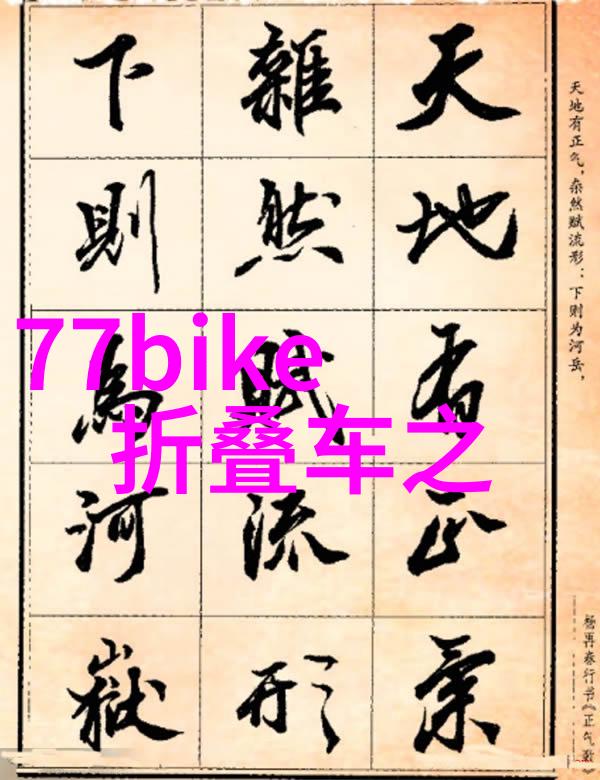 天地有正氣
雜然賦流形
下則為河嶽
天地有正气，杂然赋流形：下则为河岳，
杨再春行书《正气歌》
77bike
折叠车之